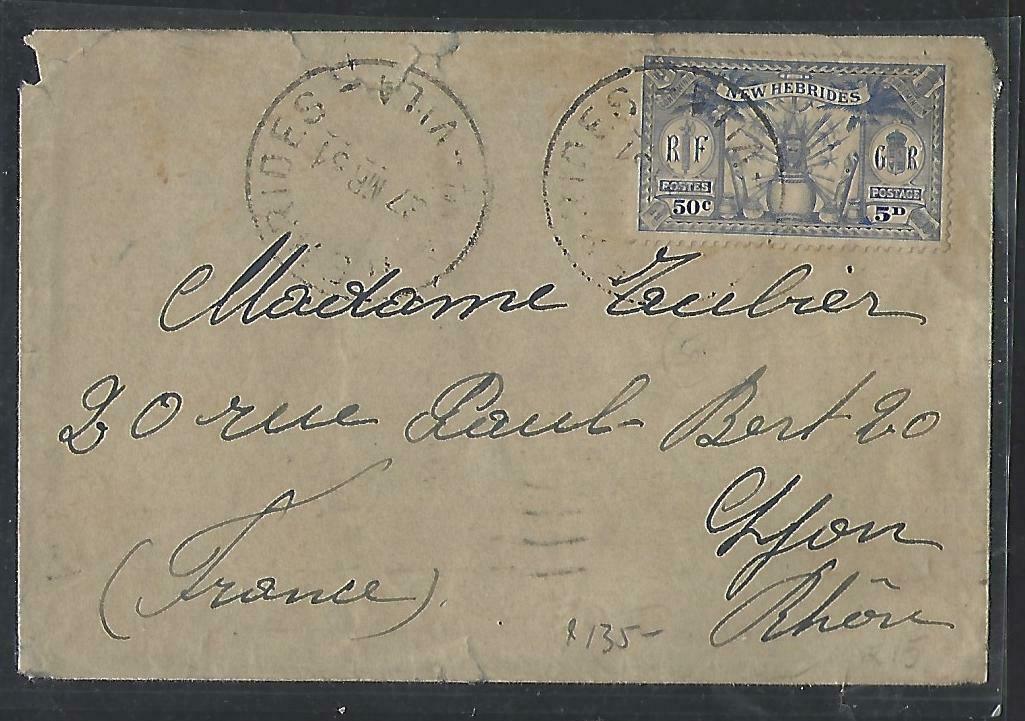 VILA
27 MR 31
NEW HEBRIDES
RF
GR
POSTES
POSTAGE
50c
5D
Madame Taubier
20 rue Paul-Bert 20
Lyon
Rhône
(France).
135-